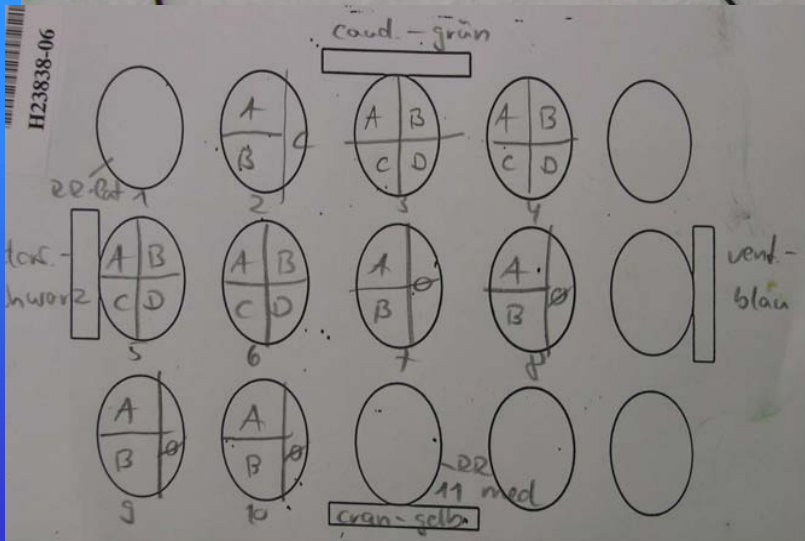 H23838-06
caud.-grün
A
B
C
A B
C D
A B
C D
RR lat
1
2
3
4
dors.-
schwarz
A B
C D
A B
C D
A
B
Ø
A
B
Ø
vent-
blau
5
6
7
8
A
B
Ø
A
B
Ø
RR
11 med
9
10
cran-gelb